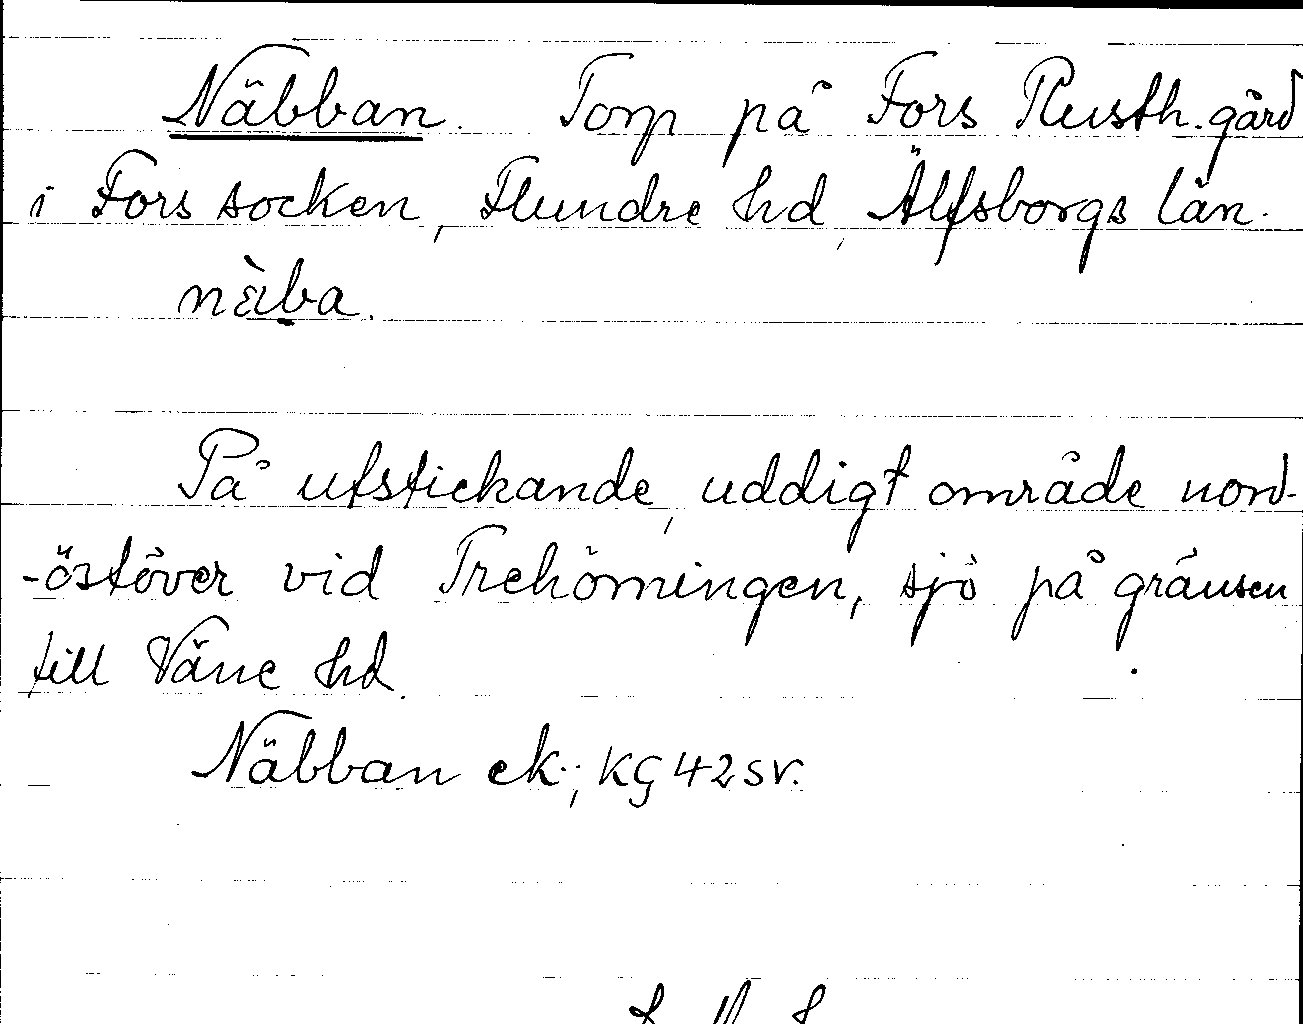 Näbban. Torp på Fors Rusth. gård
i Fors socken, Flundre hd, Älfsborgs län.
nä̀ba.
På utstickande, uddigt område nord-
-östöver vid Trehörningen, sjö på gränsen
till Väne hd.
Näbban ek.; KG 42 SV.